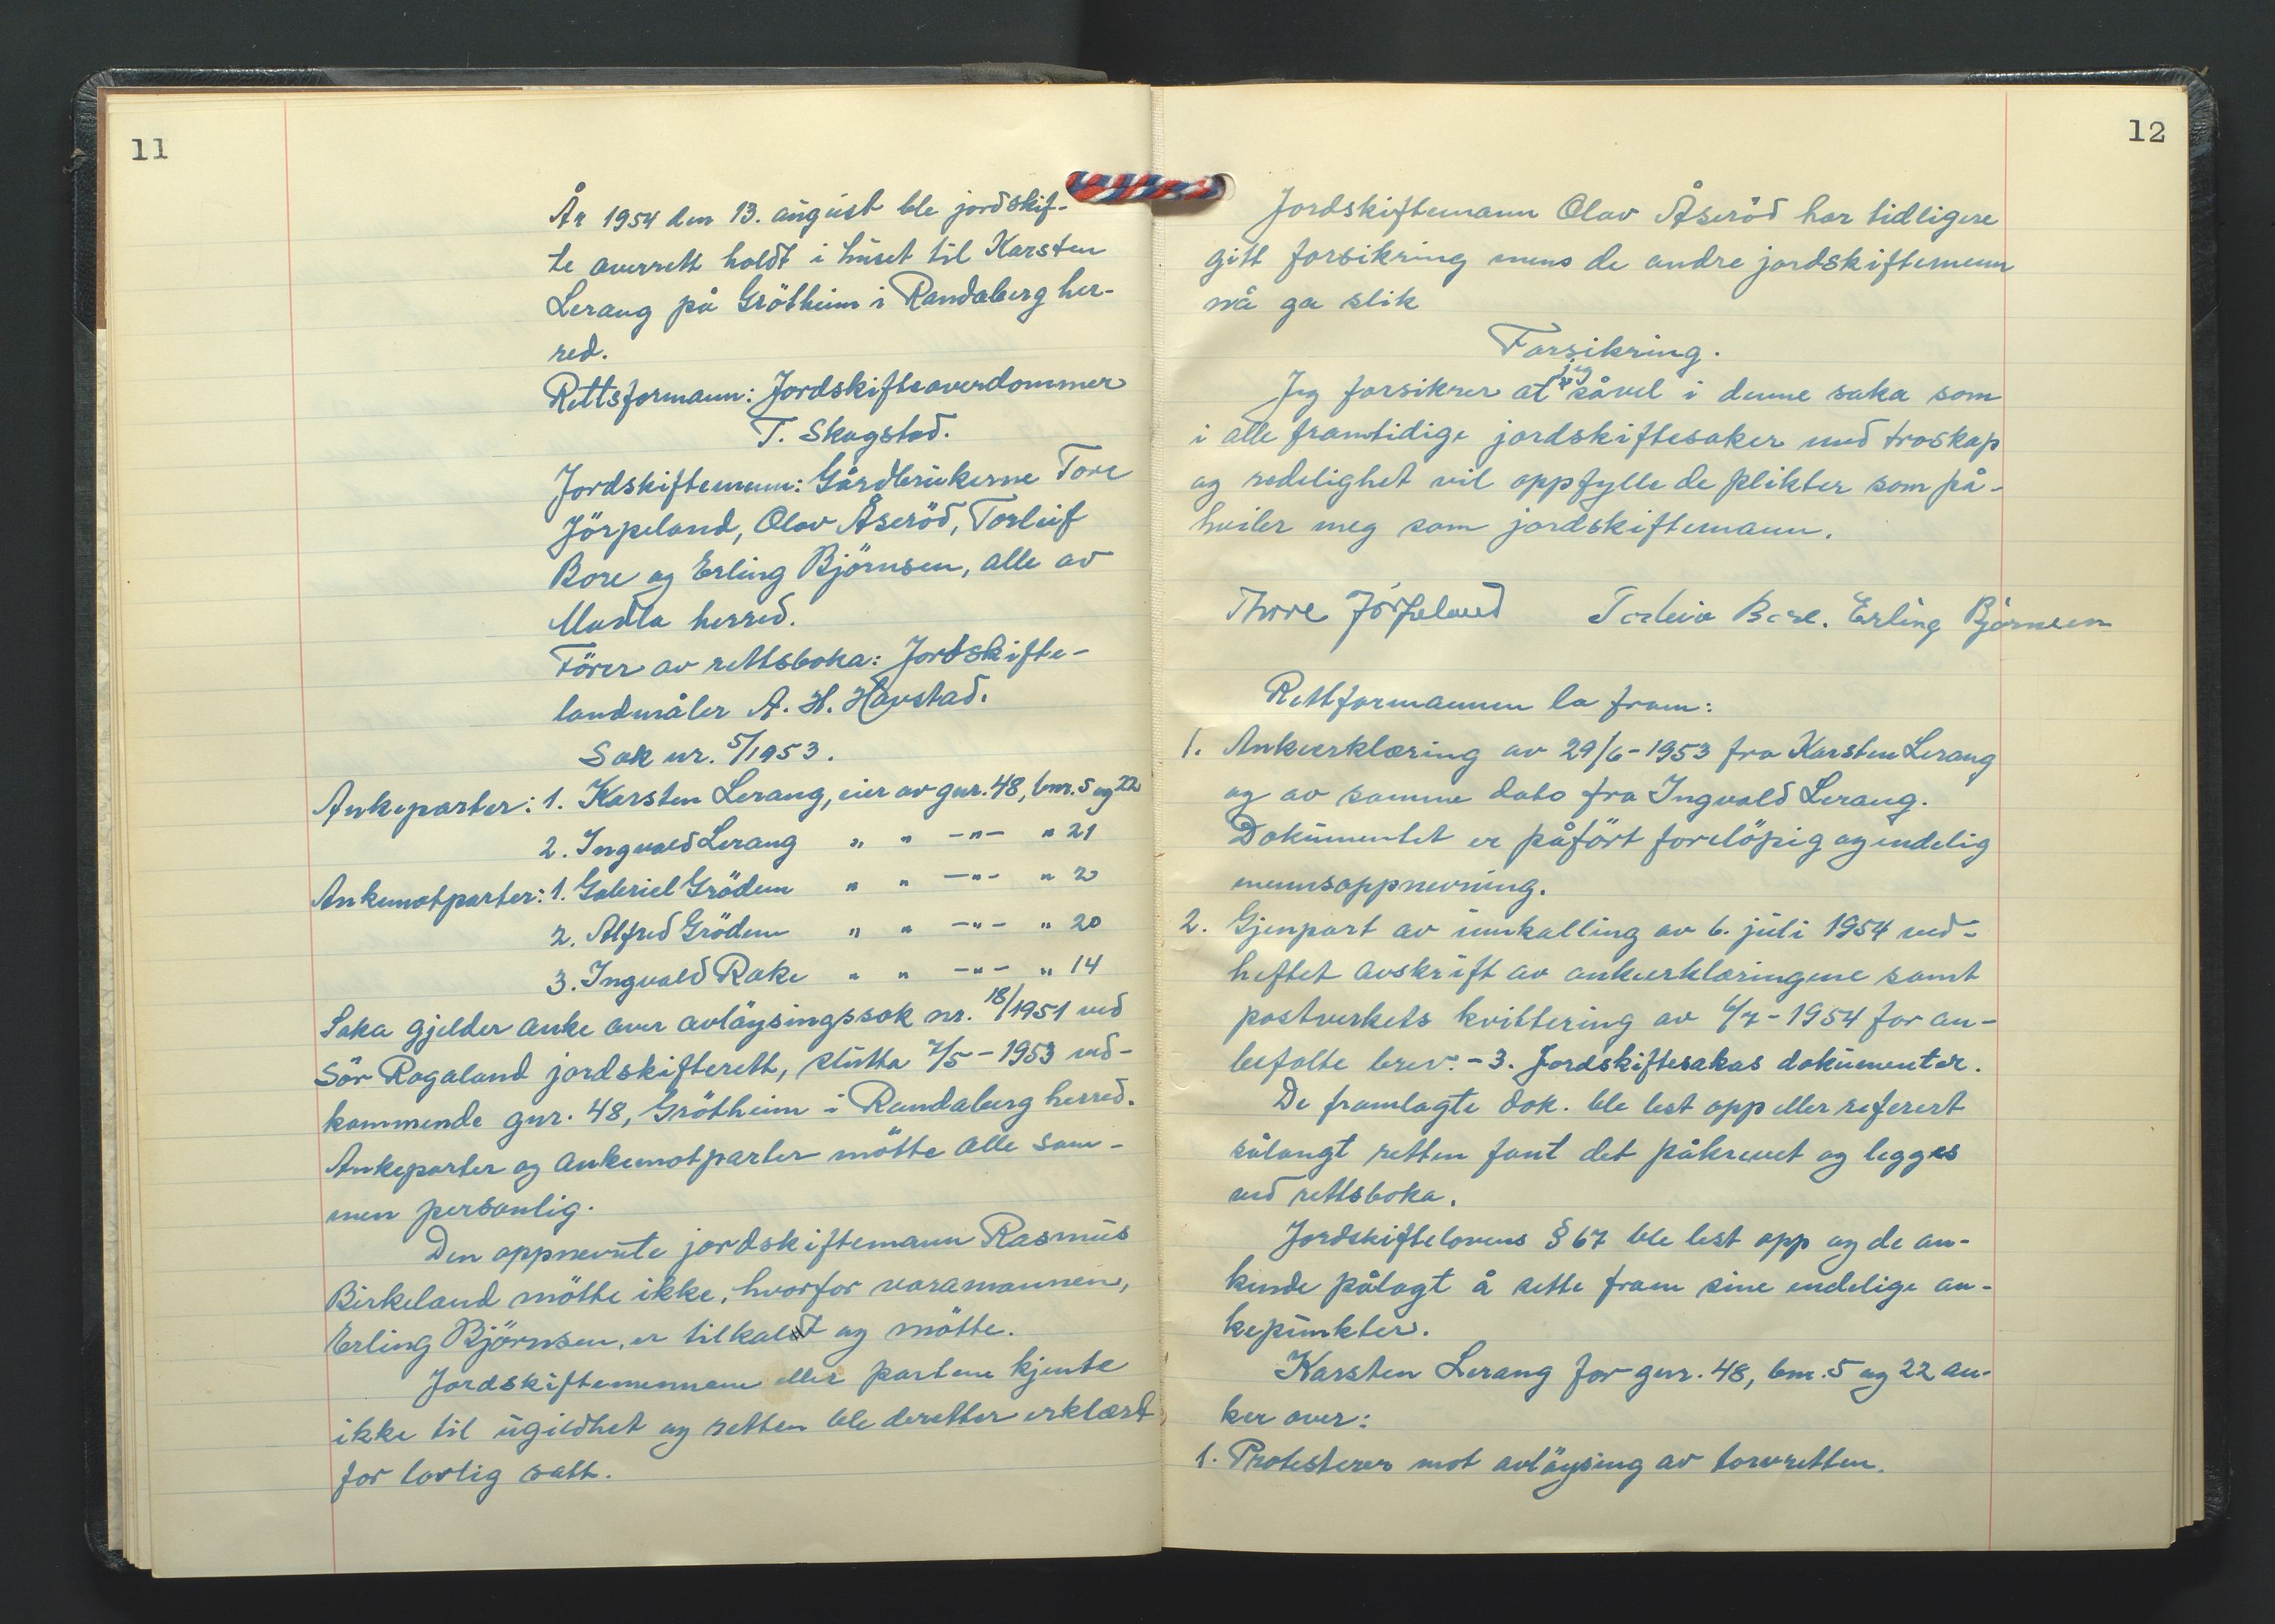 11
År 1954 den 13. august ble jordskif-
te overrett holdt i huset til Karsten
Lerang på Grötheim i Randaberg her-
red.
Rettsformann: Jordskifteoverdommer
T. Skogstad.
Jordskiftemenn: Gårdbrukerne Tore
Jörpeland, Olav Åseröd, Torleif
Bore og Erling Björnsen, alle av
Madla herred.
Förer av rettsboka: Jordskifte-
landmåler A. H. Havstad.
Sak nr. 5/1953.
Ankeparter: 1. Karsten Lerang, eier av gnr. 48, bnr. 5 og 22
2. Ingvald Lerang " " -"- " 21
Ankemotparter: 1. Gabriel Grödem " " -"- " 2
2. Alfred Grödem " " -"- " 20
3. Ingvald Rake " " -"- " 14
Saka gjelder anke over avlöysingssak nr. 18/1951 ved
Sör Rogaland jordskifterett, slutta 7/5-1953 ved-
kommende gnr. 48, Grötheim i Randaberg herred.
Ankeparter og ankemotparter mötte alle sam-
men personlig.
Den oppnevnte jordskiftemann Rasmus
Birkeland mötte ikke, hvorfor varamannen,
Erling Björnsen, er tilkalt og mötte.
Jordskiftemennene eller partene kjente
ikke til ugildhet og retten ble deretter erklært
for lovlig satt.
12
Jordskiftemann Olav Åseröd har tidligere
gitt forsikring mens de andre jordskiftemenn
nå ga slik
Forsikring.
Jeg forsikrer at jeg såvel i denne saka som
i alle framtidige jordskiftesaker med troskap
og redelighet vil oppfylle de plikter som på-
hviler meg som jordskiftemann.
Thore Jörpeland Torleiv Bore. Erling Björnsen
Rettformannen la fram:
1. Ankeerklæring av 29/6-1953 fra Karsten Lerang
og av samme dato fra Ingvald Lerang.
Dokumentet er påfört forelöpig og endelig
mennsoppnevning.
2. Gjenpart av innkalling av 6. juli 1954 ved-
heftet avskrift av ankeerklæringene samt
postverkets kvittering av 6/7-1954 for an-
befalte brev. - 3. Jordskiftesakas dokumenter.
De framlagte dok. ble lest opp eller referert
sålangt retten fant det påkrevet og legges
ved rettsboka.
Jordskiftelovens § 67 ble lest opp og de an-
kende pålagt å sette fram sine endelige an-
kepunkter.
Karsten Lerang for gnr. 48, bnr. 5 og 22 an-
ker over:
1. Protesterer mot avlöysing av torvretten.